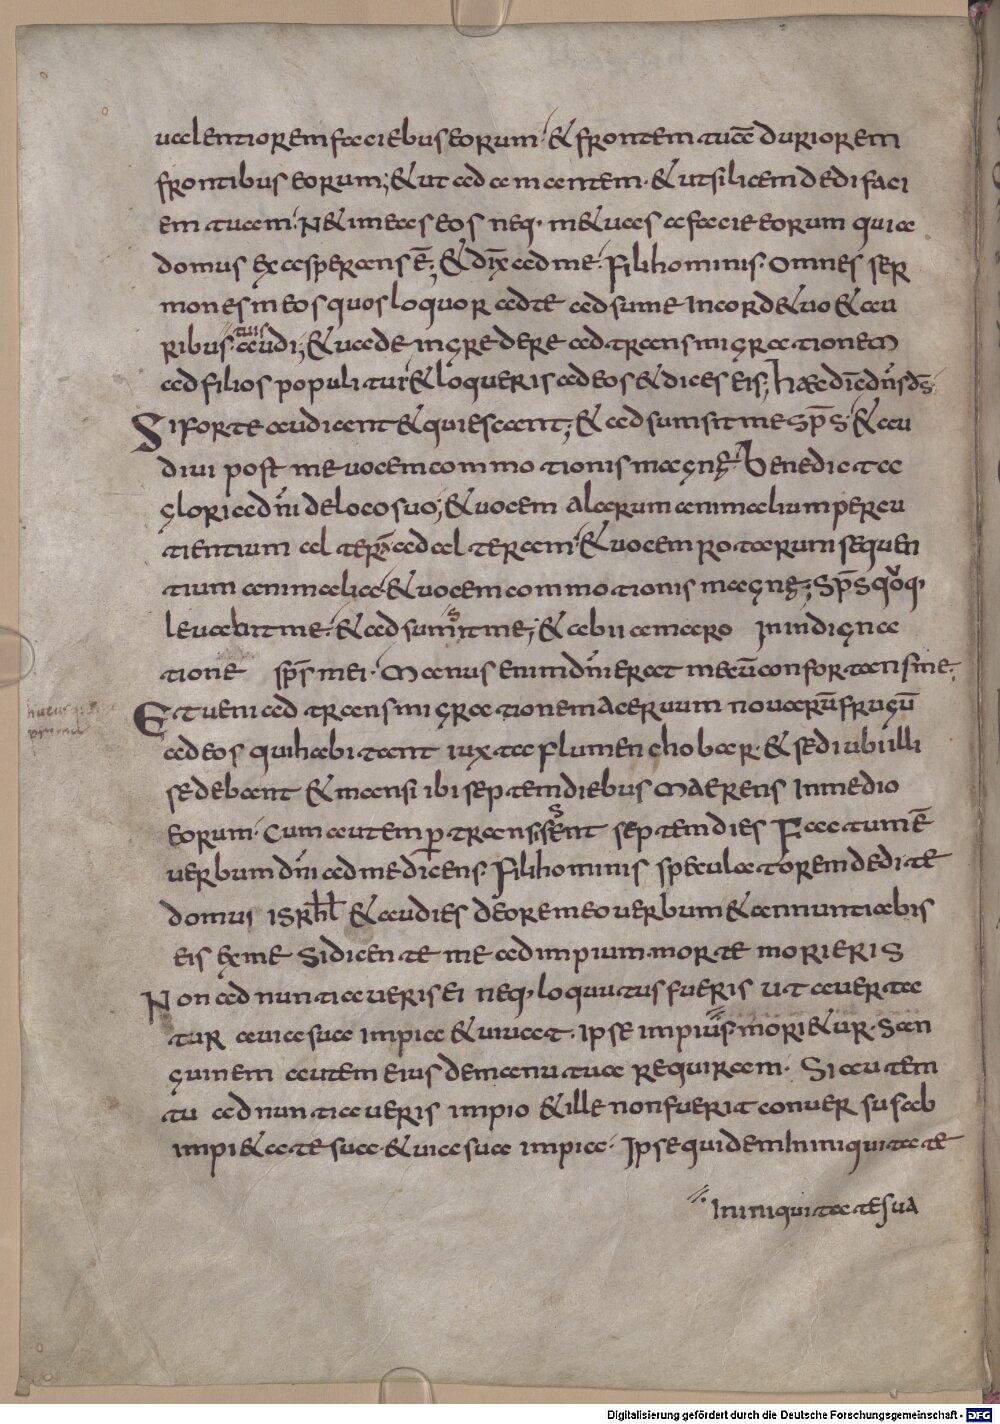 ualentiorem faciebus eorum· & frontem tuā duriorem
frontibus eorum; & ut adamantem· & ut silicem dedi faci
em tuam· N& imeas eos neq· m&uas a facie eorum quia
domus exasperans ē; & dix̄ ad me· Fili hominis· omnes ser
mones meos quos loquor ad te adsume In corde tuo & au
ribus tuis audi; & uade ingredere ad transmigrationem
ad filios populi tui & loqueris ad eos & dices eis; haec dic̄ dn̄s ds̄
Si forte audiant & quiescant; & adsumsit me sp̄s· & au
diui post me uocem commotionis magnę· Benedicta
gloria dn̄i de loco suo; & uocem alarum animalium percu
tientium alteram ad alteram· & uocem rotarum sequen
tium animalia· & uocem commotionis magnę; sp̄s quoq·
leuauit me· & adsumsit me; & abii amaro In indigna
tione sp̄s mei· Manus enim dn̄i erat mecū confortans me;
Et ueni ad transmigrationem aceruum nouarū frugū
ad eos qui habitant iuxta flumen chobar· & sedi ubi illi
sedebant & mansi ibi septem diebus maerens In medio
eorum· Cum autem p transissent septem dies Factum ē
uerbum dn̄i ad me dicens· Fili hominis speculatorem dedi te
domui isrhl & audies de ore meo uerbum & annuntiabis
eis ex me Si dicente me ad impium· morte morieris
Non adnuntiaueris ei neq· loquutus fueris ut auerta
tur a uia sua impia & uiuat· ipse impius mori&ur· San
guinem autem eius de manu tua requiram· Si autem
tu adnuntiaueris impio & ille non fuerit conuersus ab
impi&ate sua· & uia sua impia· Ipse quidem In iniquitate
In iniquitate sua
Digitalisierung gefördert durch die Deutsche Forschungsgemeinschaft - DFG